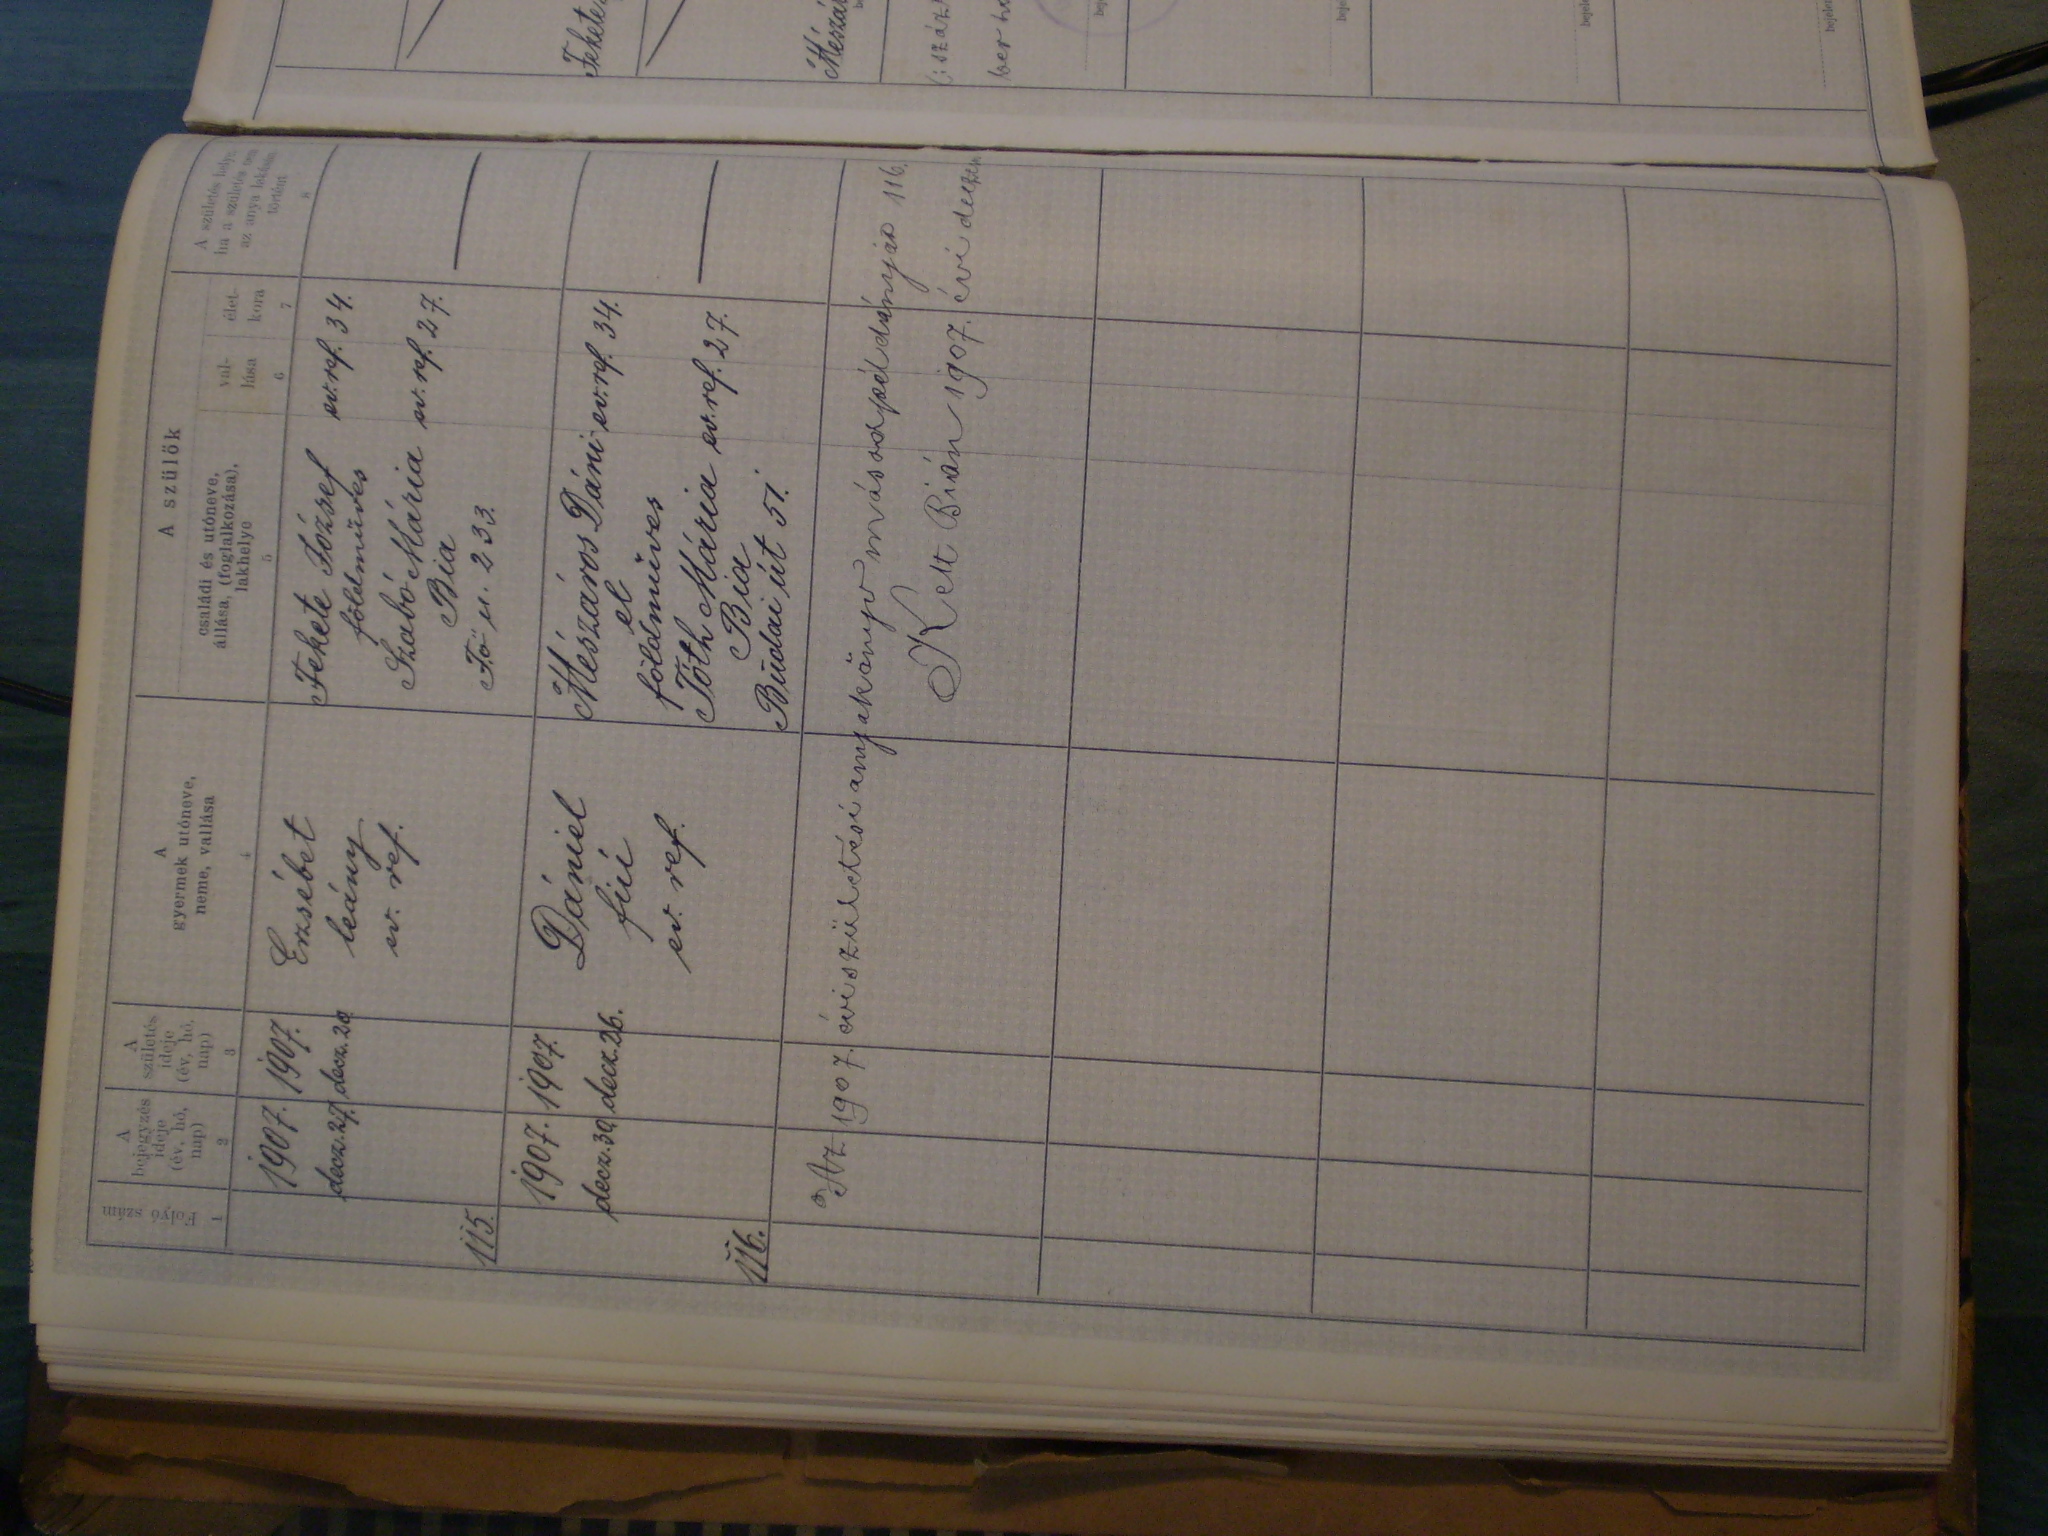 Folyó szám
1
A
bejegyzés
ideje
(év, hó,
nap)
2
A
születés
ideje
(év, hó,
nap)
3
A
gyermek utóneve,
neme, vallása
4
A szülők
családi és utóneve,
állása, (foglalkozása),
lakhelye
5
val-
lása
6
élet-
kora
7
A születés helye,
ha a születés nem
az anya lakásán
történt
8
115.
1907.
decz. 27.
1907.
decz. 20
Erzsébet
leány
ev. ref.
Fekete József ev. ref. 34.
földműves
Szabó Mária ev. ref. 27.
Bia
Fő u. 233.
116.
1907.
decz. 30.
1907.
decz. 26.
Dániel
fiú
ev. ref.
Mészáros Dáni- ev. ref. 34.
el
földműves
Tóth Mária ev. ref. 27.
Bia
Budai út 51.
Az 1907. évi születési anyakönyv másodpéldánya 116.
Kelt Bián 1907. évi deczem
Fekete
Mészár
(:száz
ber h